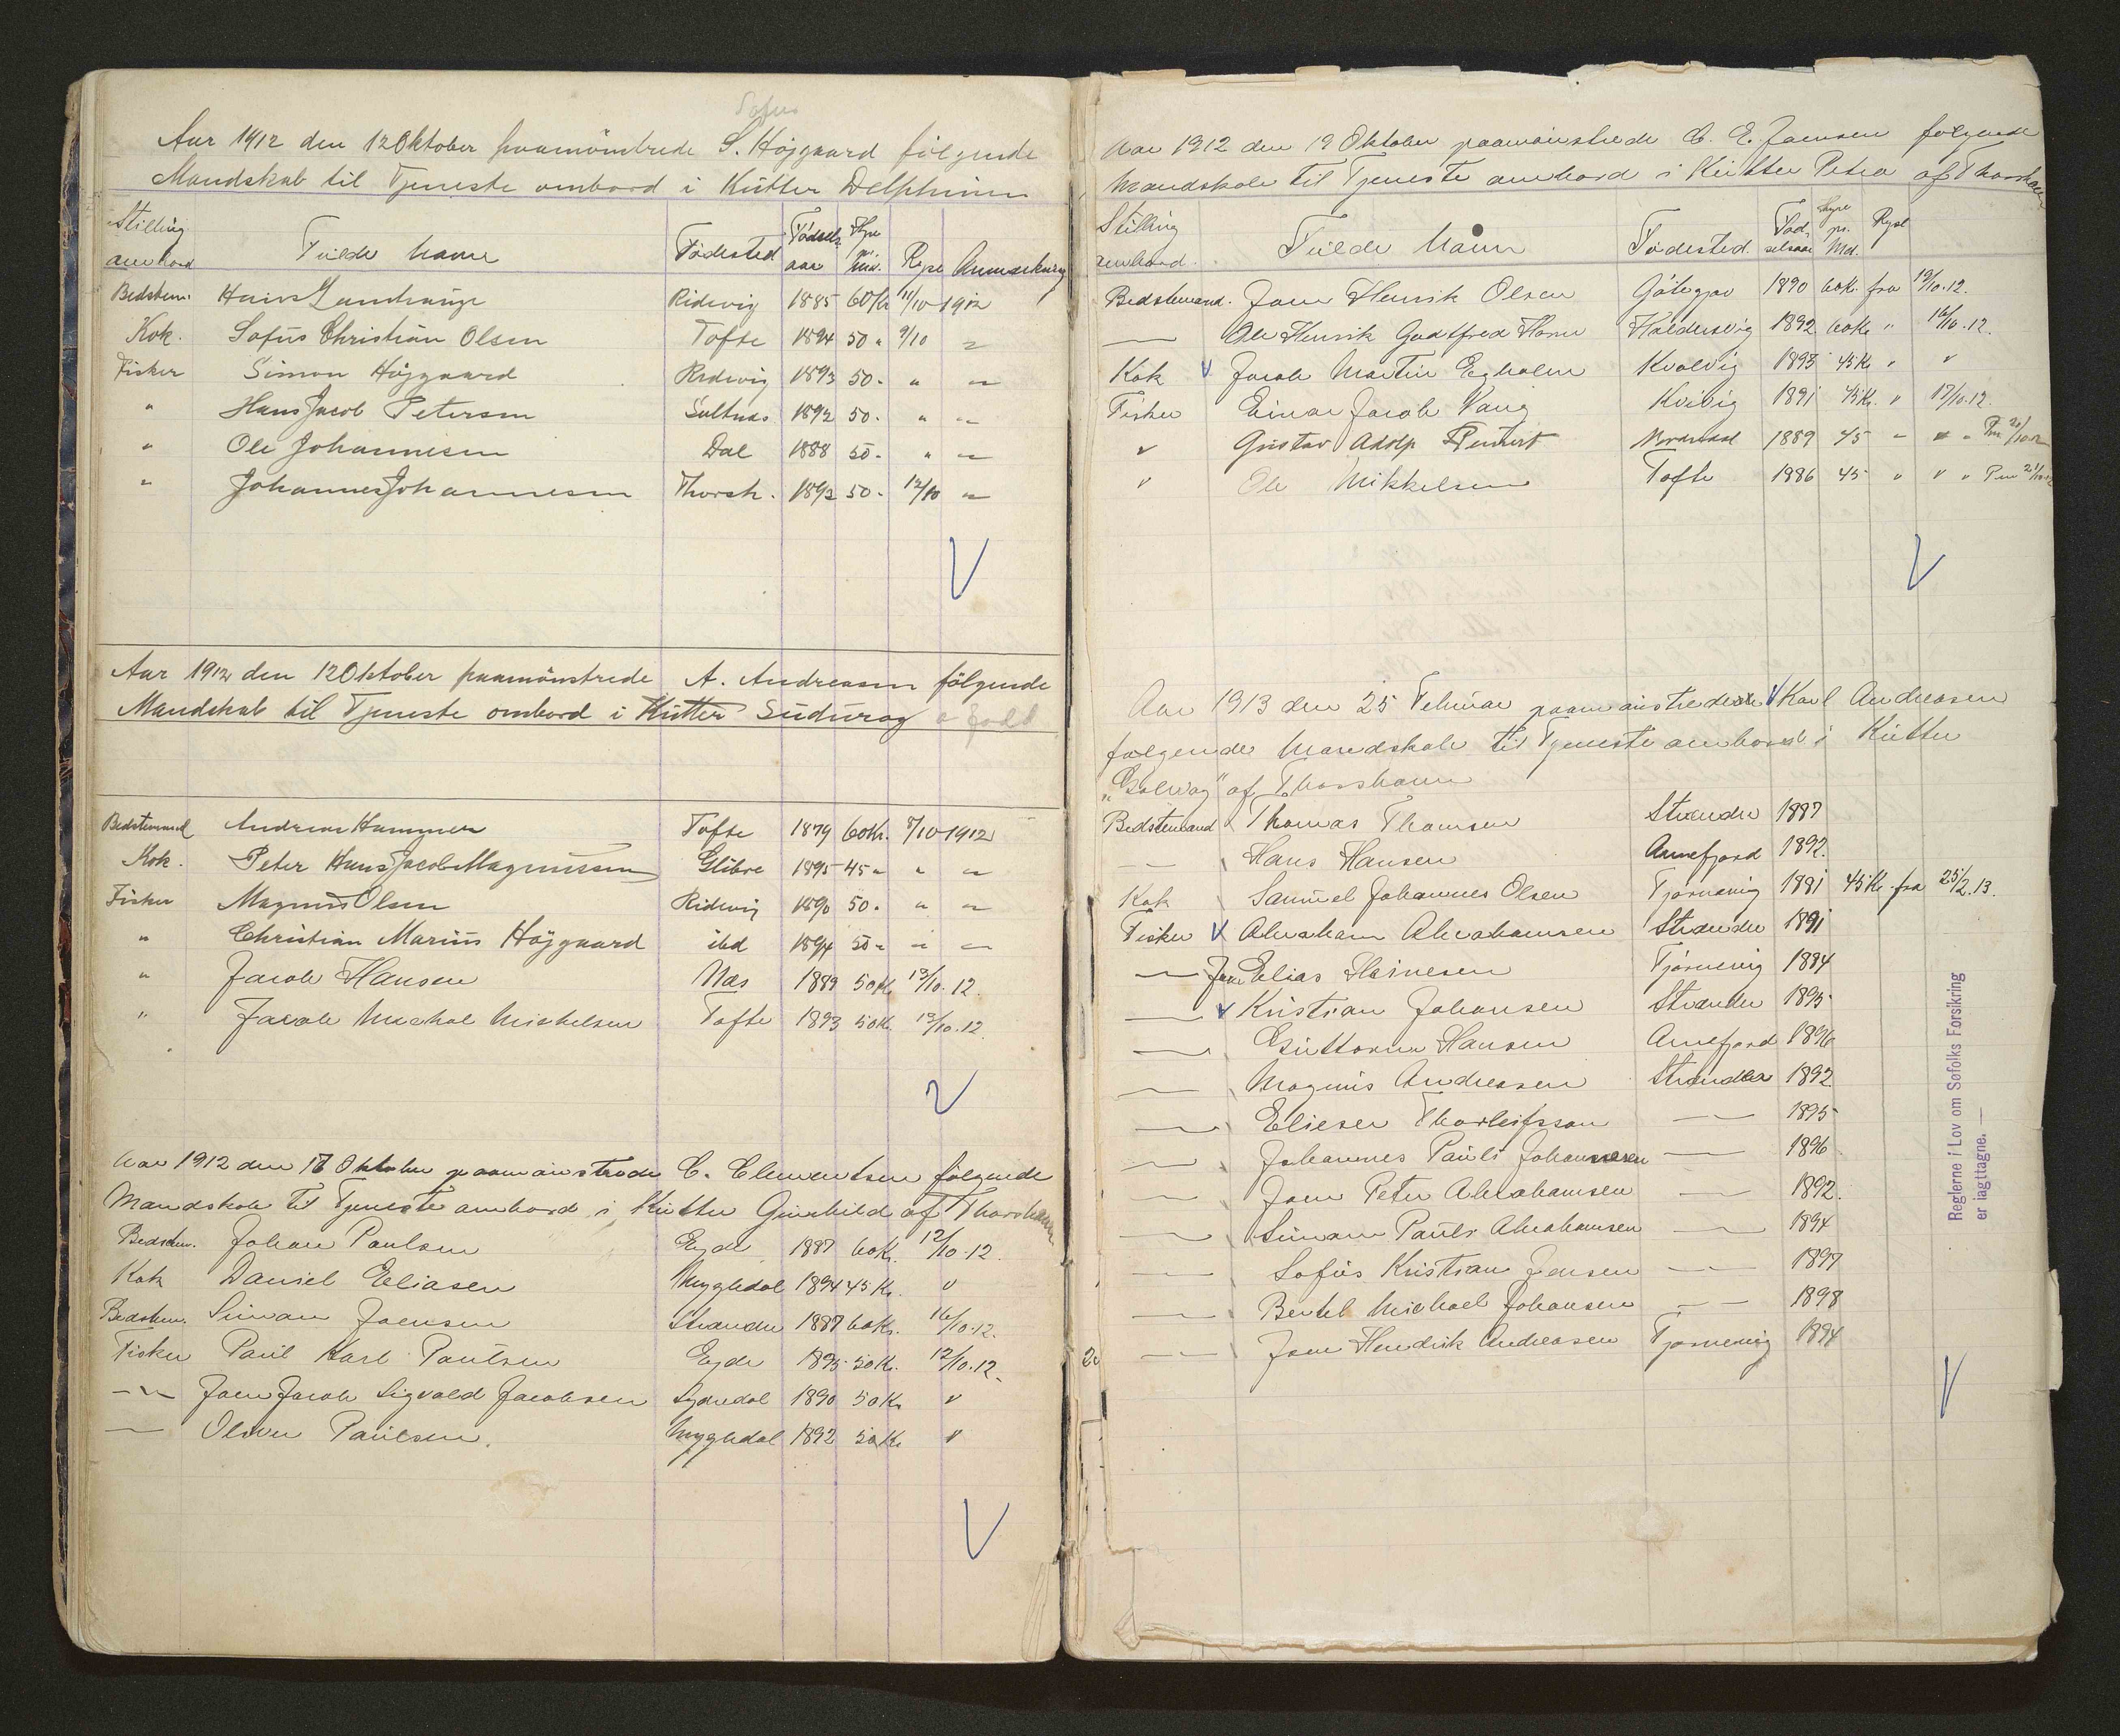 Sofus
Aar 1912 den 12 Oktober paamönstrede S. Højgaard følgende
Mandskab til Tjeneste ombord i Kutter Delphinen
Stilling ombord Fulde Navn Fødested Fødselsaar Hyre pr. Md. Rejse Anmærkning
Bedstem. Hans Ridevig 1885 60 Kr 11/10 1912
Kok. Sofus Christian Olsen Tofte 1894 50 " 9/10 "
Fisker Simon Højgaard Ridevig 1893 50 - " "
" Hans Jacob Petersen Saltnæs 1892 50 - " "
" Ole Johannesen Dal 1888 50 - " "
" Johannes Johannesen Thorsh. 1892 50 - 12/10 "
Aar 1912 den 12 Oktober paamönstrede A. Andreasen følgende
Mandskab til Tjeneste ombord i Kutter Suduroy
Bedstemand Andreas Hammer Tofte 1879 60 Kr. 8/10 1912
Kok. Peter Hans Jacob Magnussen Glibre 1895 45 " " "
Fisker Magnus Olsen Ridevig 1890 50 - " "
" Christian Marius Højgaard ibd 1894 50 - " "
" Jacob Hansen Næs 1889 50 Kr 12/10. 12.
" Jacob Michal Mickelsen Tofte 1893 50 Kr. 12/10. 12.
Aar 1912 den 17 Oktober paamønstrede C. Clementsen følgende
Mandskab til Tjeneste ombord i Kutter Gunhild af Thorshavn
Bedstem. Johan Poulsen Ejde 1887 60 Kr. 12/10. 12.
Kok Daniel Eliasen Mygledal 1894 45 Kr. "
Bedstem. Simon Joensen Strænder 1887 60 Kr. 16/10. 12.
Fisker Paul Karl Poulsen Ejde 1895 50 Kr. 12/10. 12.
— " — Joen Jacob Sigvald Jacobsen Sydredal 1890 50 Kr "
— Oliver Paulsen. Mygledal 1892 50 Kr "
Aar 1912 den 19 Oktober paamønstrede C. E. Joensen følgende
Mandskab til Tjeneste ombord i Kutter Petra af Thorshavn
Stilling ombord. Fulde Navn Fødested. Fødselsaar Hyre pr. Md. Rejse
Bedstemand. Joen Henrik Olsen Götegjov 1890 60 Kr. fra 19/10. 12.
— Ole Henrik Godtfred Haldersvig 1892 60 Kr " 16/10. 12.
Kok Jacob Martin Egholm Kvalvig 1893 45 Kr " "
Fisker Einar Jacob Vang Kvivig 1891 45 Kr. " 17/10. 12.
" Gustav Adolp 1889 45 " "
" Ole Mikkelsen Tofte 1886 45 " " "
Aar 1913 den 25 Februar paamønstrede Karl Andreasen
følgende Mandskab til Tjeneste ombord i Kutter
"Solvag" af Thorshavn
Bedstemand Thomas Thomsen Strænder 1887
— Hans Hansen Arnefjord 1892.
Kok Samuel Johannes Olsen Tjørnevig 1891 45 Kr. fra 25/2. 13.
Fisker Abraham Abrahamsen Strænder 1891
— Joen Elias Heinesen Tjørnevig 1894
— Kristian Johansen Strænder 1895
— Guttorm Hansen Arnefjord 1896
— Magnus Andreasen Strænder 1892
— Elieser Thorleifsson — 1895
— Johannes Pauli Johannesen — 1896
— Joen Peter Abrahamsen — 1892.
— Simon Pauli Abrahamsen — 1894
— Sofus Kristian Jensen — 1897
— Bertel Michael Johansen — 1898
— Joen Hendrik Andreasen Tjørnevig 1894
Reglerne i Lov om Søfolks Forsikring
er iagttagne. —